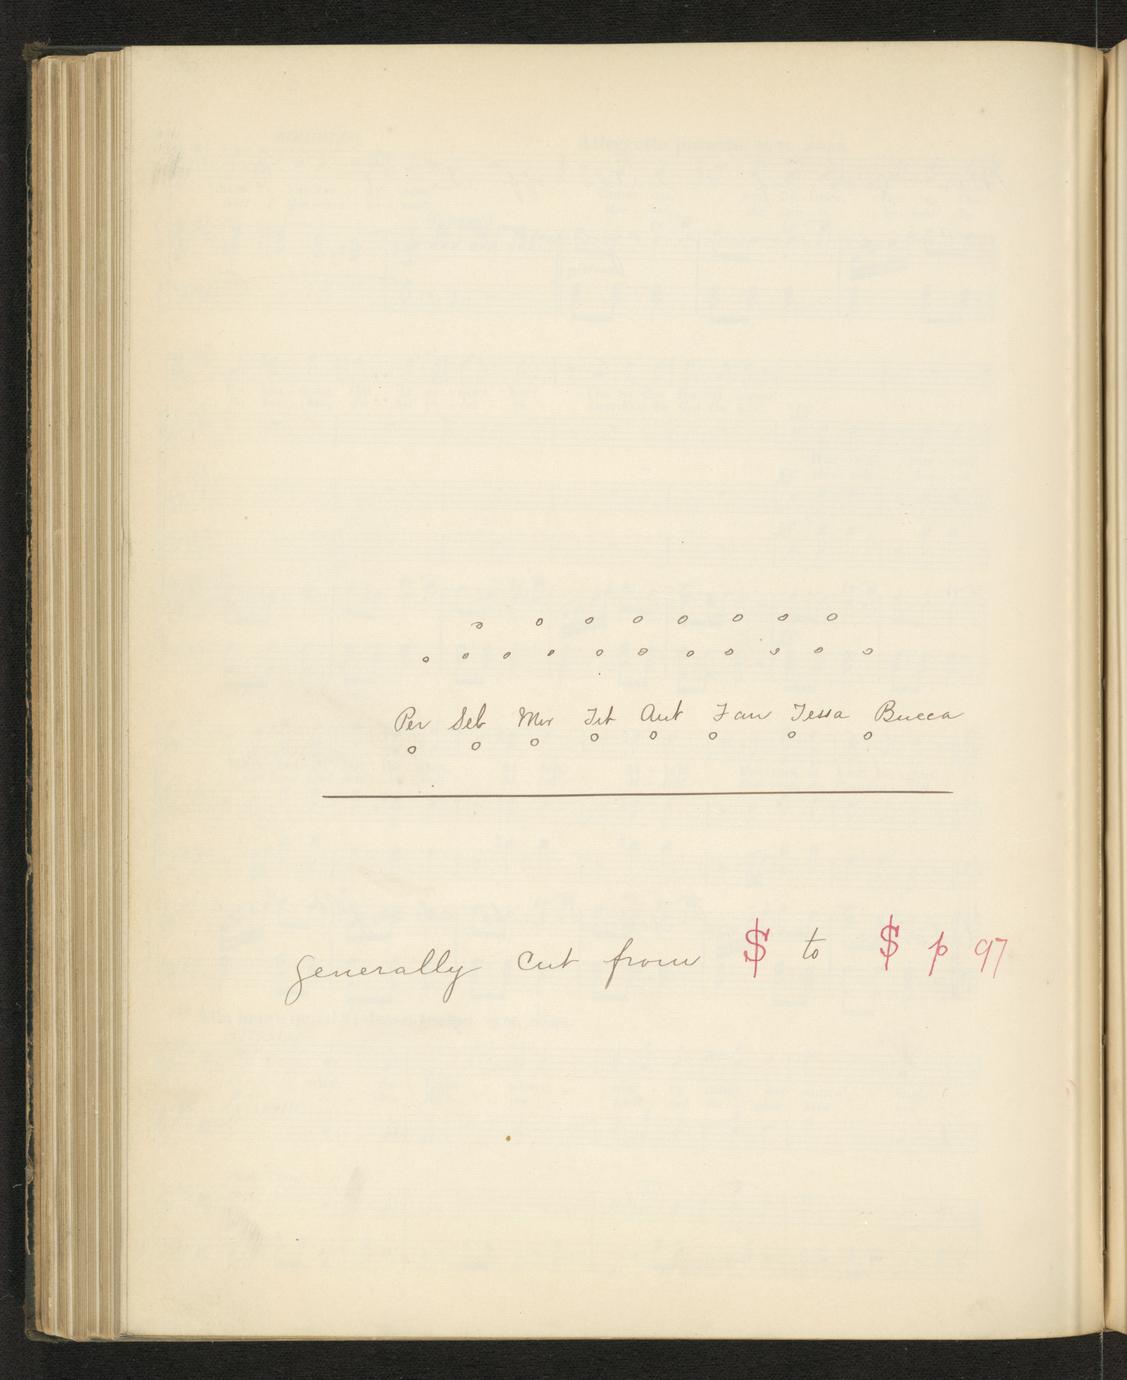 Per Seb Mir Tit Aut Fan Tessa Bucca
generally cut from $ to $ p 97